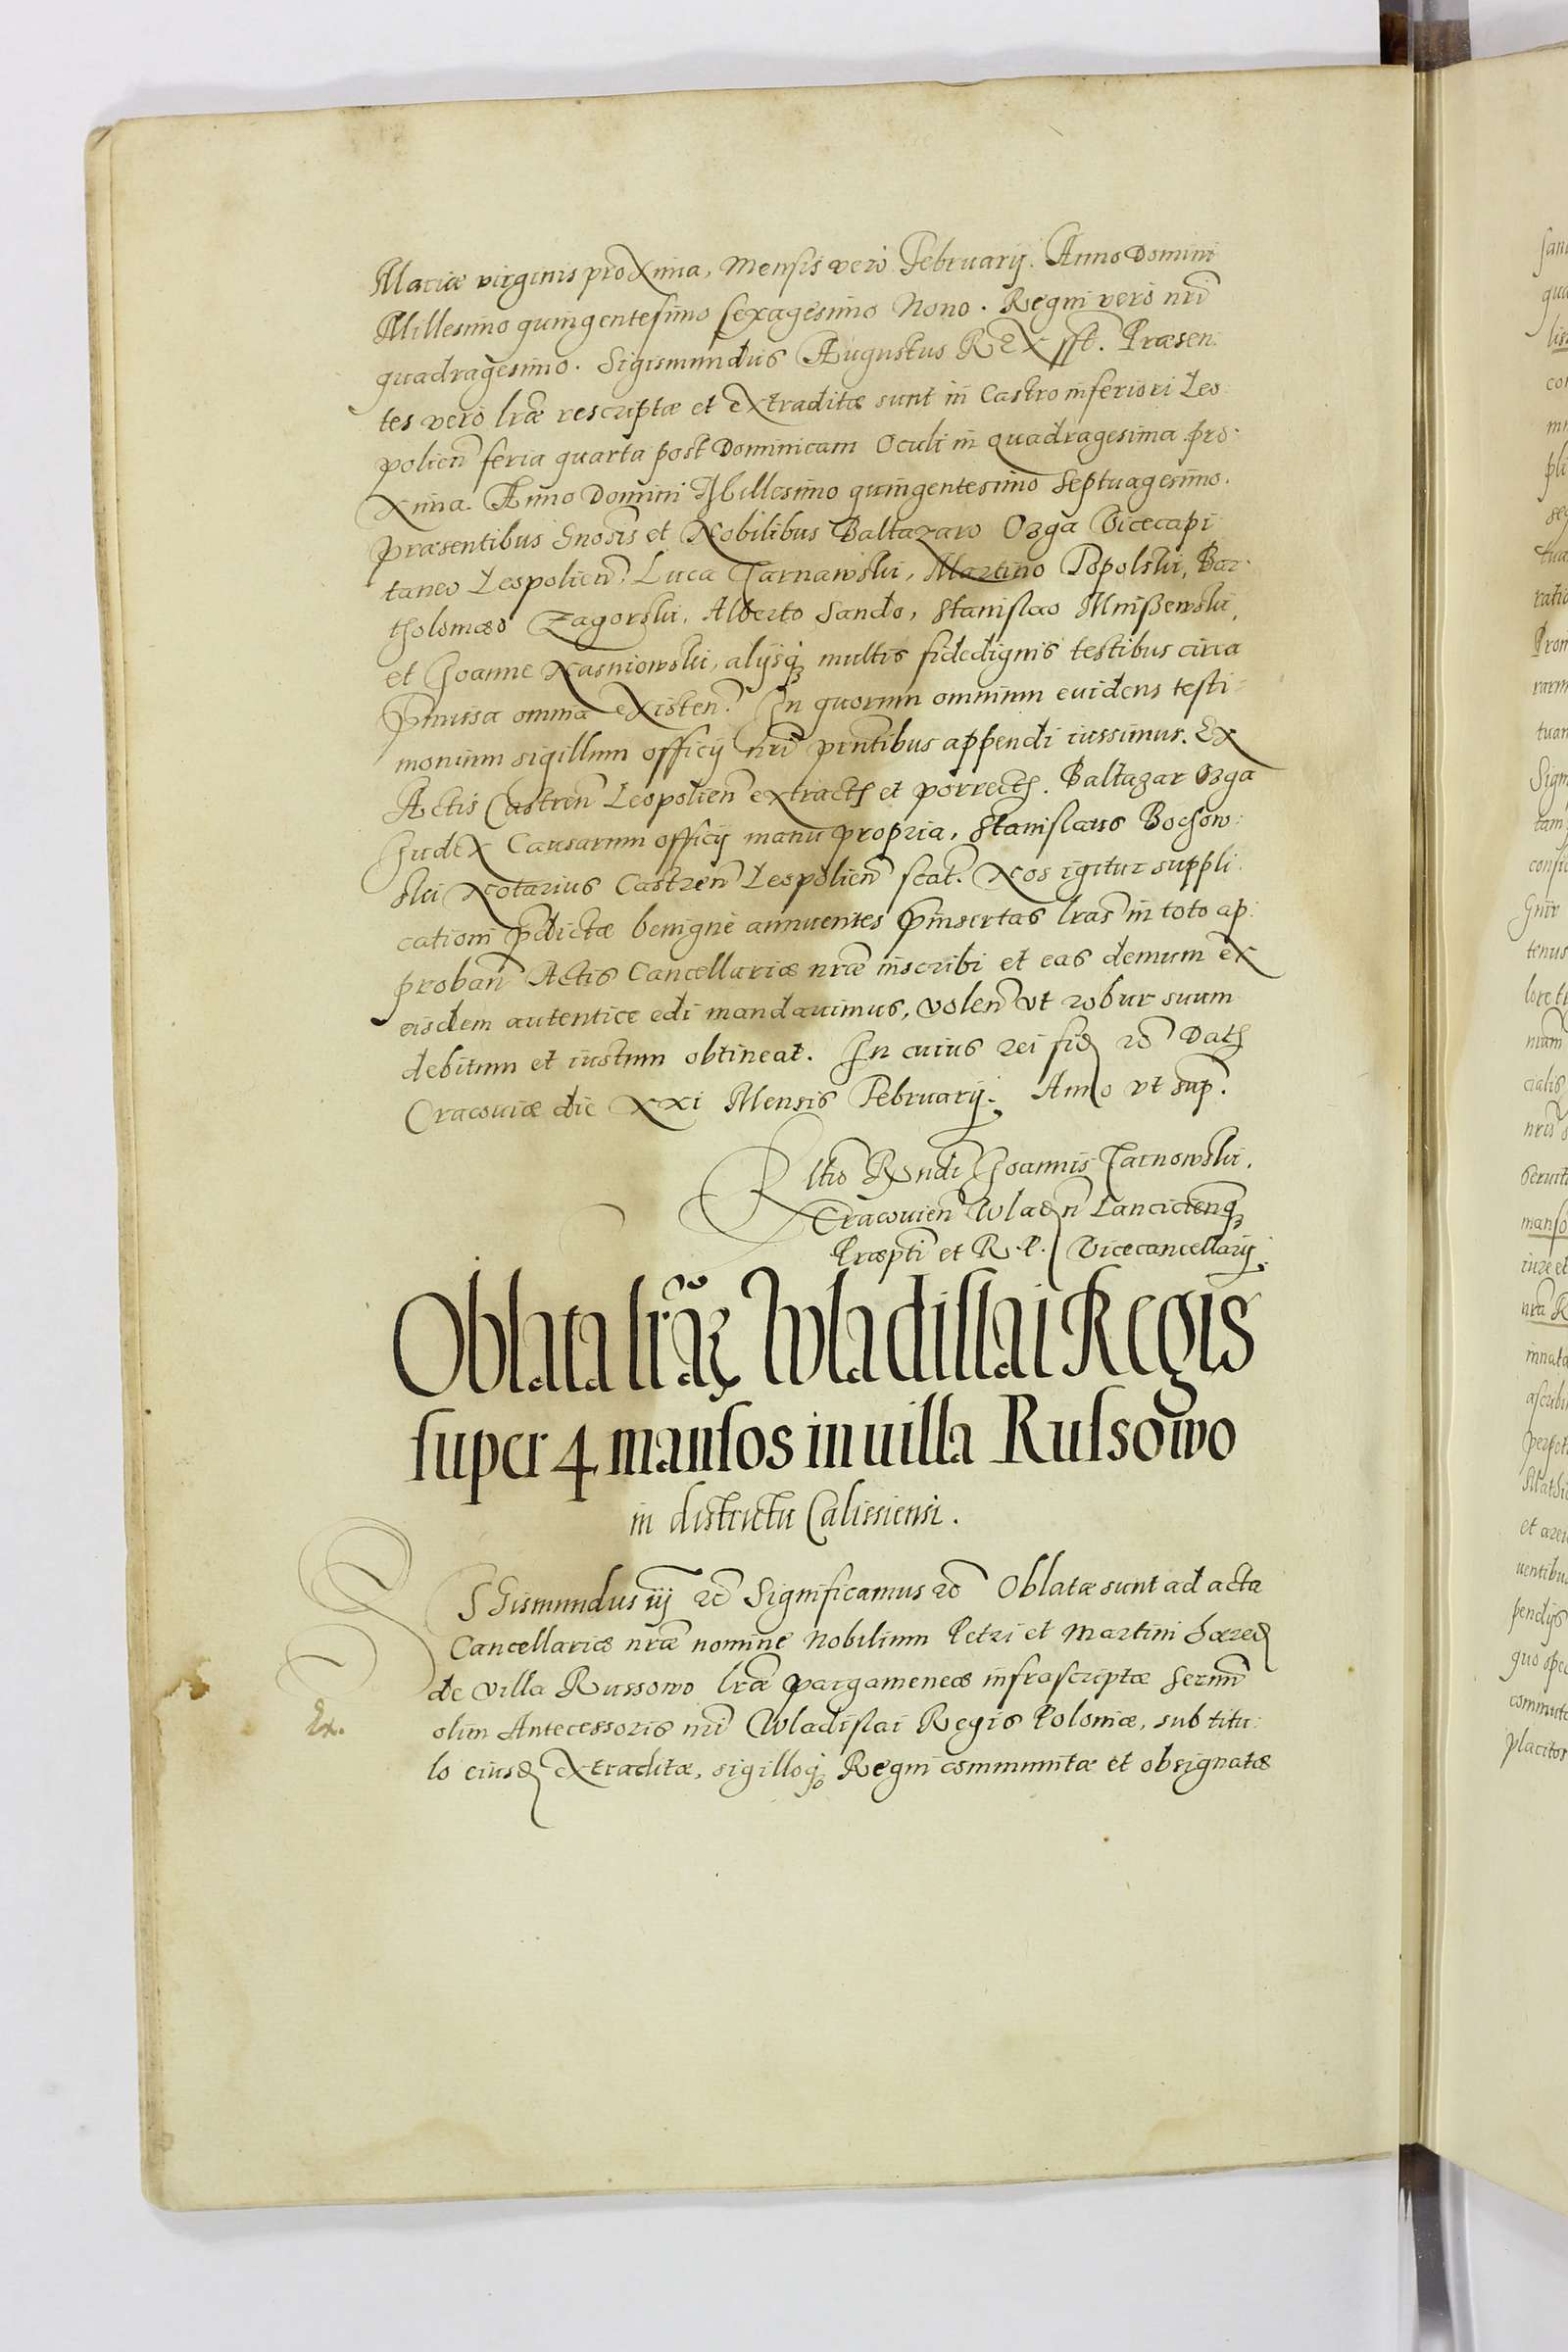 Mariæ virginis proxima, Mensis vero Februarij. Anno Domini
Millesimo quingentesimo sexagesimo Nono. Regni vero nrī
quadragesimo. Sigismundus Augustus Rex sst. Præsen:
tes vero lræ rescriptæ et extraditæ sunt in Castro inferiori Leo
polien̄ feria quarta post Dominicam Oculi in quadragesima pro
xima. Anno Domini Millesimo quingentesimo Septuagesimo.
præsentibus Gnosis et Nobilibus Baltazaro Ozga Vicecapi
taneo Leopolien̄. Luca Tarnawski, Martino Popolski, Bar
tholomæo Zagorski, Alberto Sando, Stanislao Mnißewski,
et Joanne Nasniowski, alijsq₃ multis fidedignis testibus circa
p̄missa omnia existen̄. In quorum omnium evidens testi
monium sigillum officij nrī pr̄ntibus appendi iussimus. Ex
Actis Castren̄ Leopolien̄ extract₃ et porrect₃. Baltazar Ozga
Judex Causarum officij manu propria, Stanislaus Bochow:
ski Notarius Castren̄ Leopolien̄ scat. Nos igitur suppli
cationi p̄dictæ benigne annuentes p̄insertas lras in toto ap:
proban̄ Actis Cancellariæ nræ inscribi et eas demum ex
eisdem autentice edi mandavimus, volen̄ vt robur suum
debitum et iustum obtineat. In cuius rei fid₃ rc̄ Dat₃
Cracoviæ die XXI Mensis Februarij. Anno vt sup.
Rltio Rndi Joannis Tarnowski,
Cracovien̄ Wladn̄ Lancicienq₃
Præpti et R. P. Vicecancellarij.
Oblata lrāꝝ Wladislai Regis
super 4 mansos in villa Russowo
in districtu Calissiensi.
Sigismundus iij rc̄ Significamus rc̄ Oblatæ sunt ad acta
Cancellariæ nræ nomine Nobilium Petri et Martini hæred₃
de villa Russowo lræ pargameneæ infrascriptæ Sermi
olim Antecessoris nri Wladislai Regis Poloniæ, sub titu:
Ex.
lo eiusd₃ extraditæ, sigilloq₃ Regni communitæ et obsignatæ